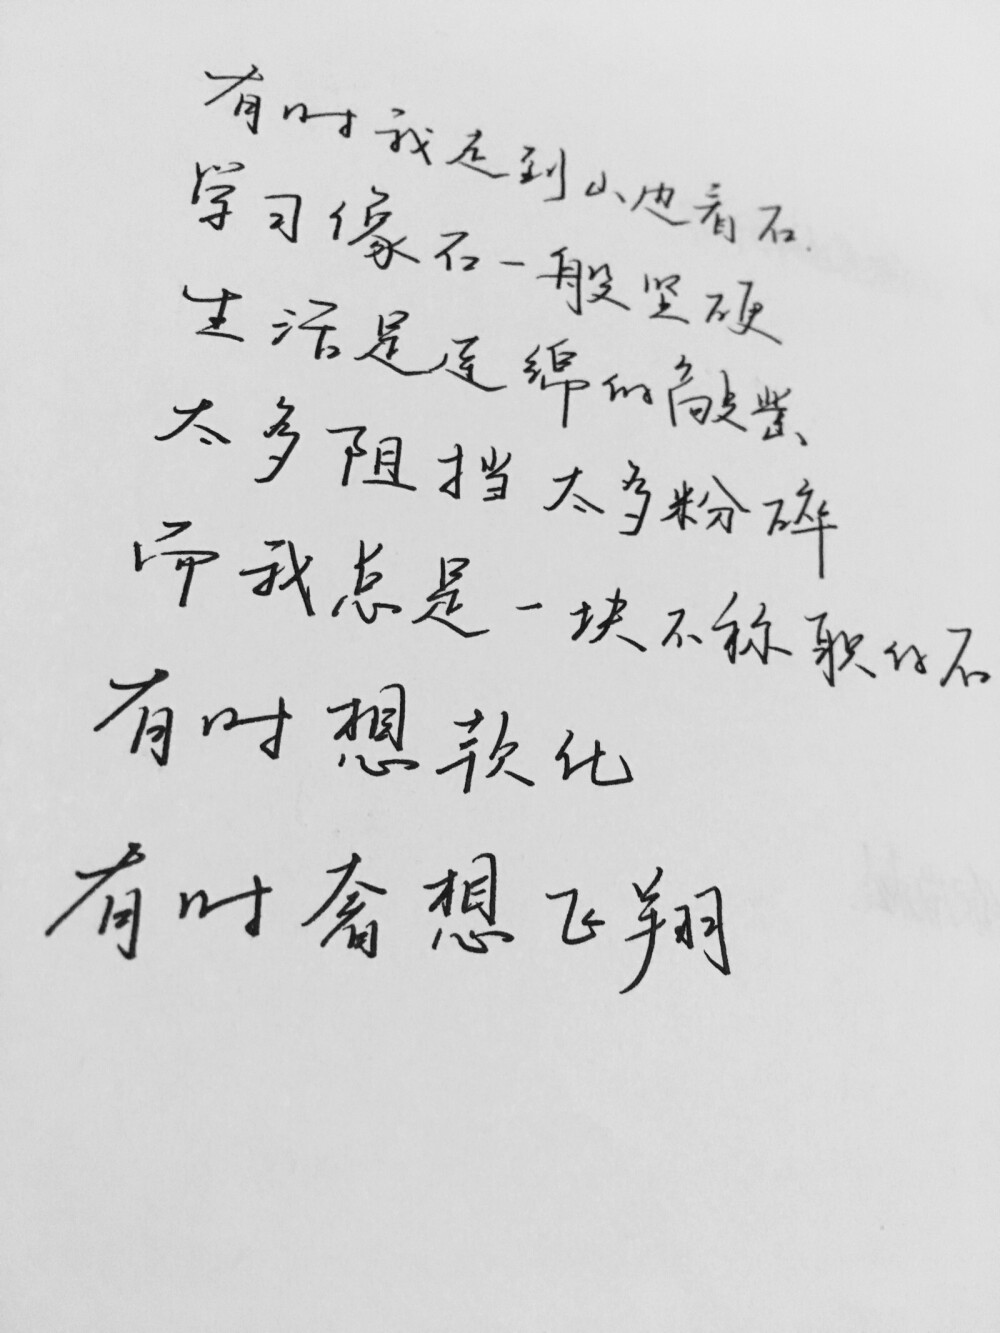 有时我走到山边看石
学习像石一般坚硬
生活是连绵的敲凿
太多阻挡 太多粉碎
而我总是一块不称职的石
有时想软化
有时奢想飞翔